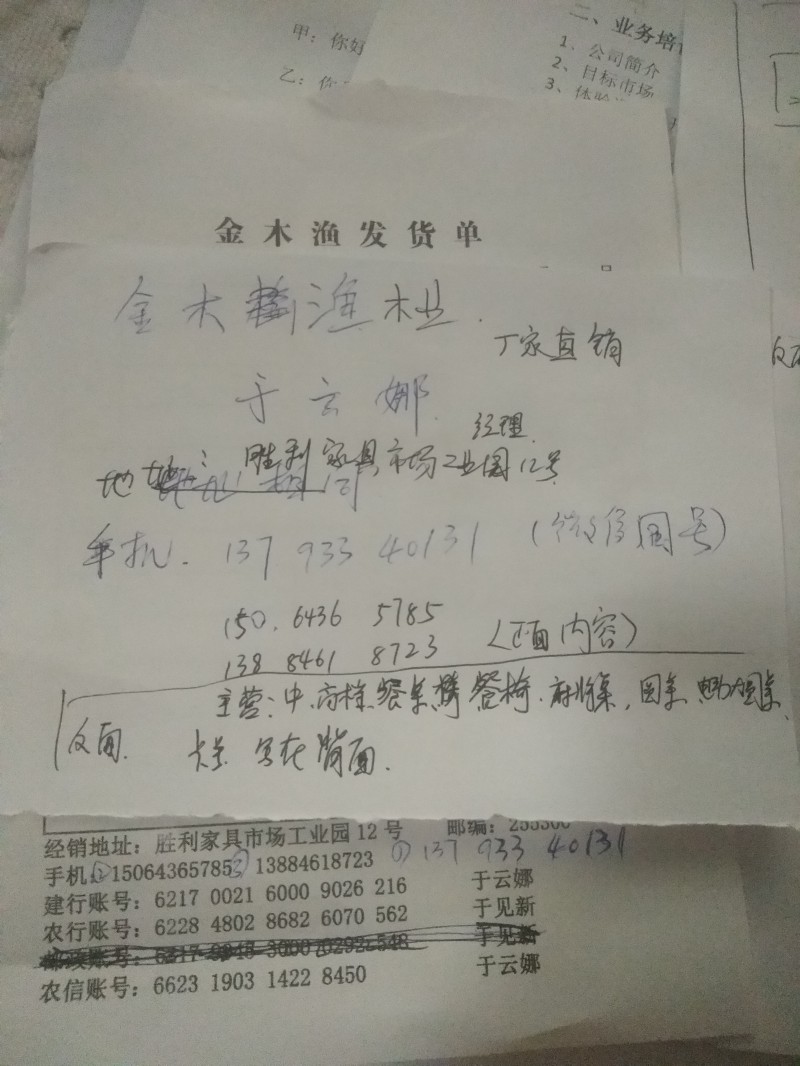 甲：你好
乙：你
二、业务培
1、公司简介
2、目标市场
3、体验
金木渔发货单
金木渔木业
厂家直销
于云娜
经理
地址：胜利家具市场工业园12号
手机. 137 933 40131 (微信同号)
150. 6436 5785
138 8461 8723 (正面内容)
反面. 主营：中、高档、餐桌 餐椅、麻将桌，圆桌、电动圆桌、
大桌 写在背面.
经销地址：胜利家具市场工业园12号 邮编：255300
手机：②15064365785③ 13884618723 ①137 933 40131
建行账号：6217 0021 6000 9026 216 于云娜
农行账号：6228 4802 8682 6070 562 于见新
于见新
农信账号：6623 1903 1422 8450 于云娜